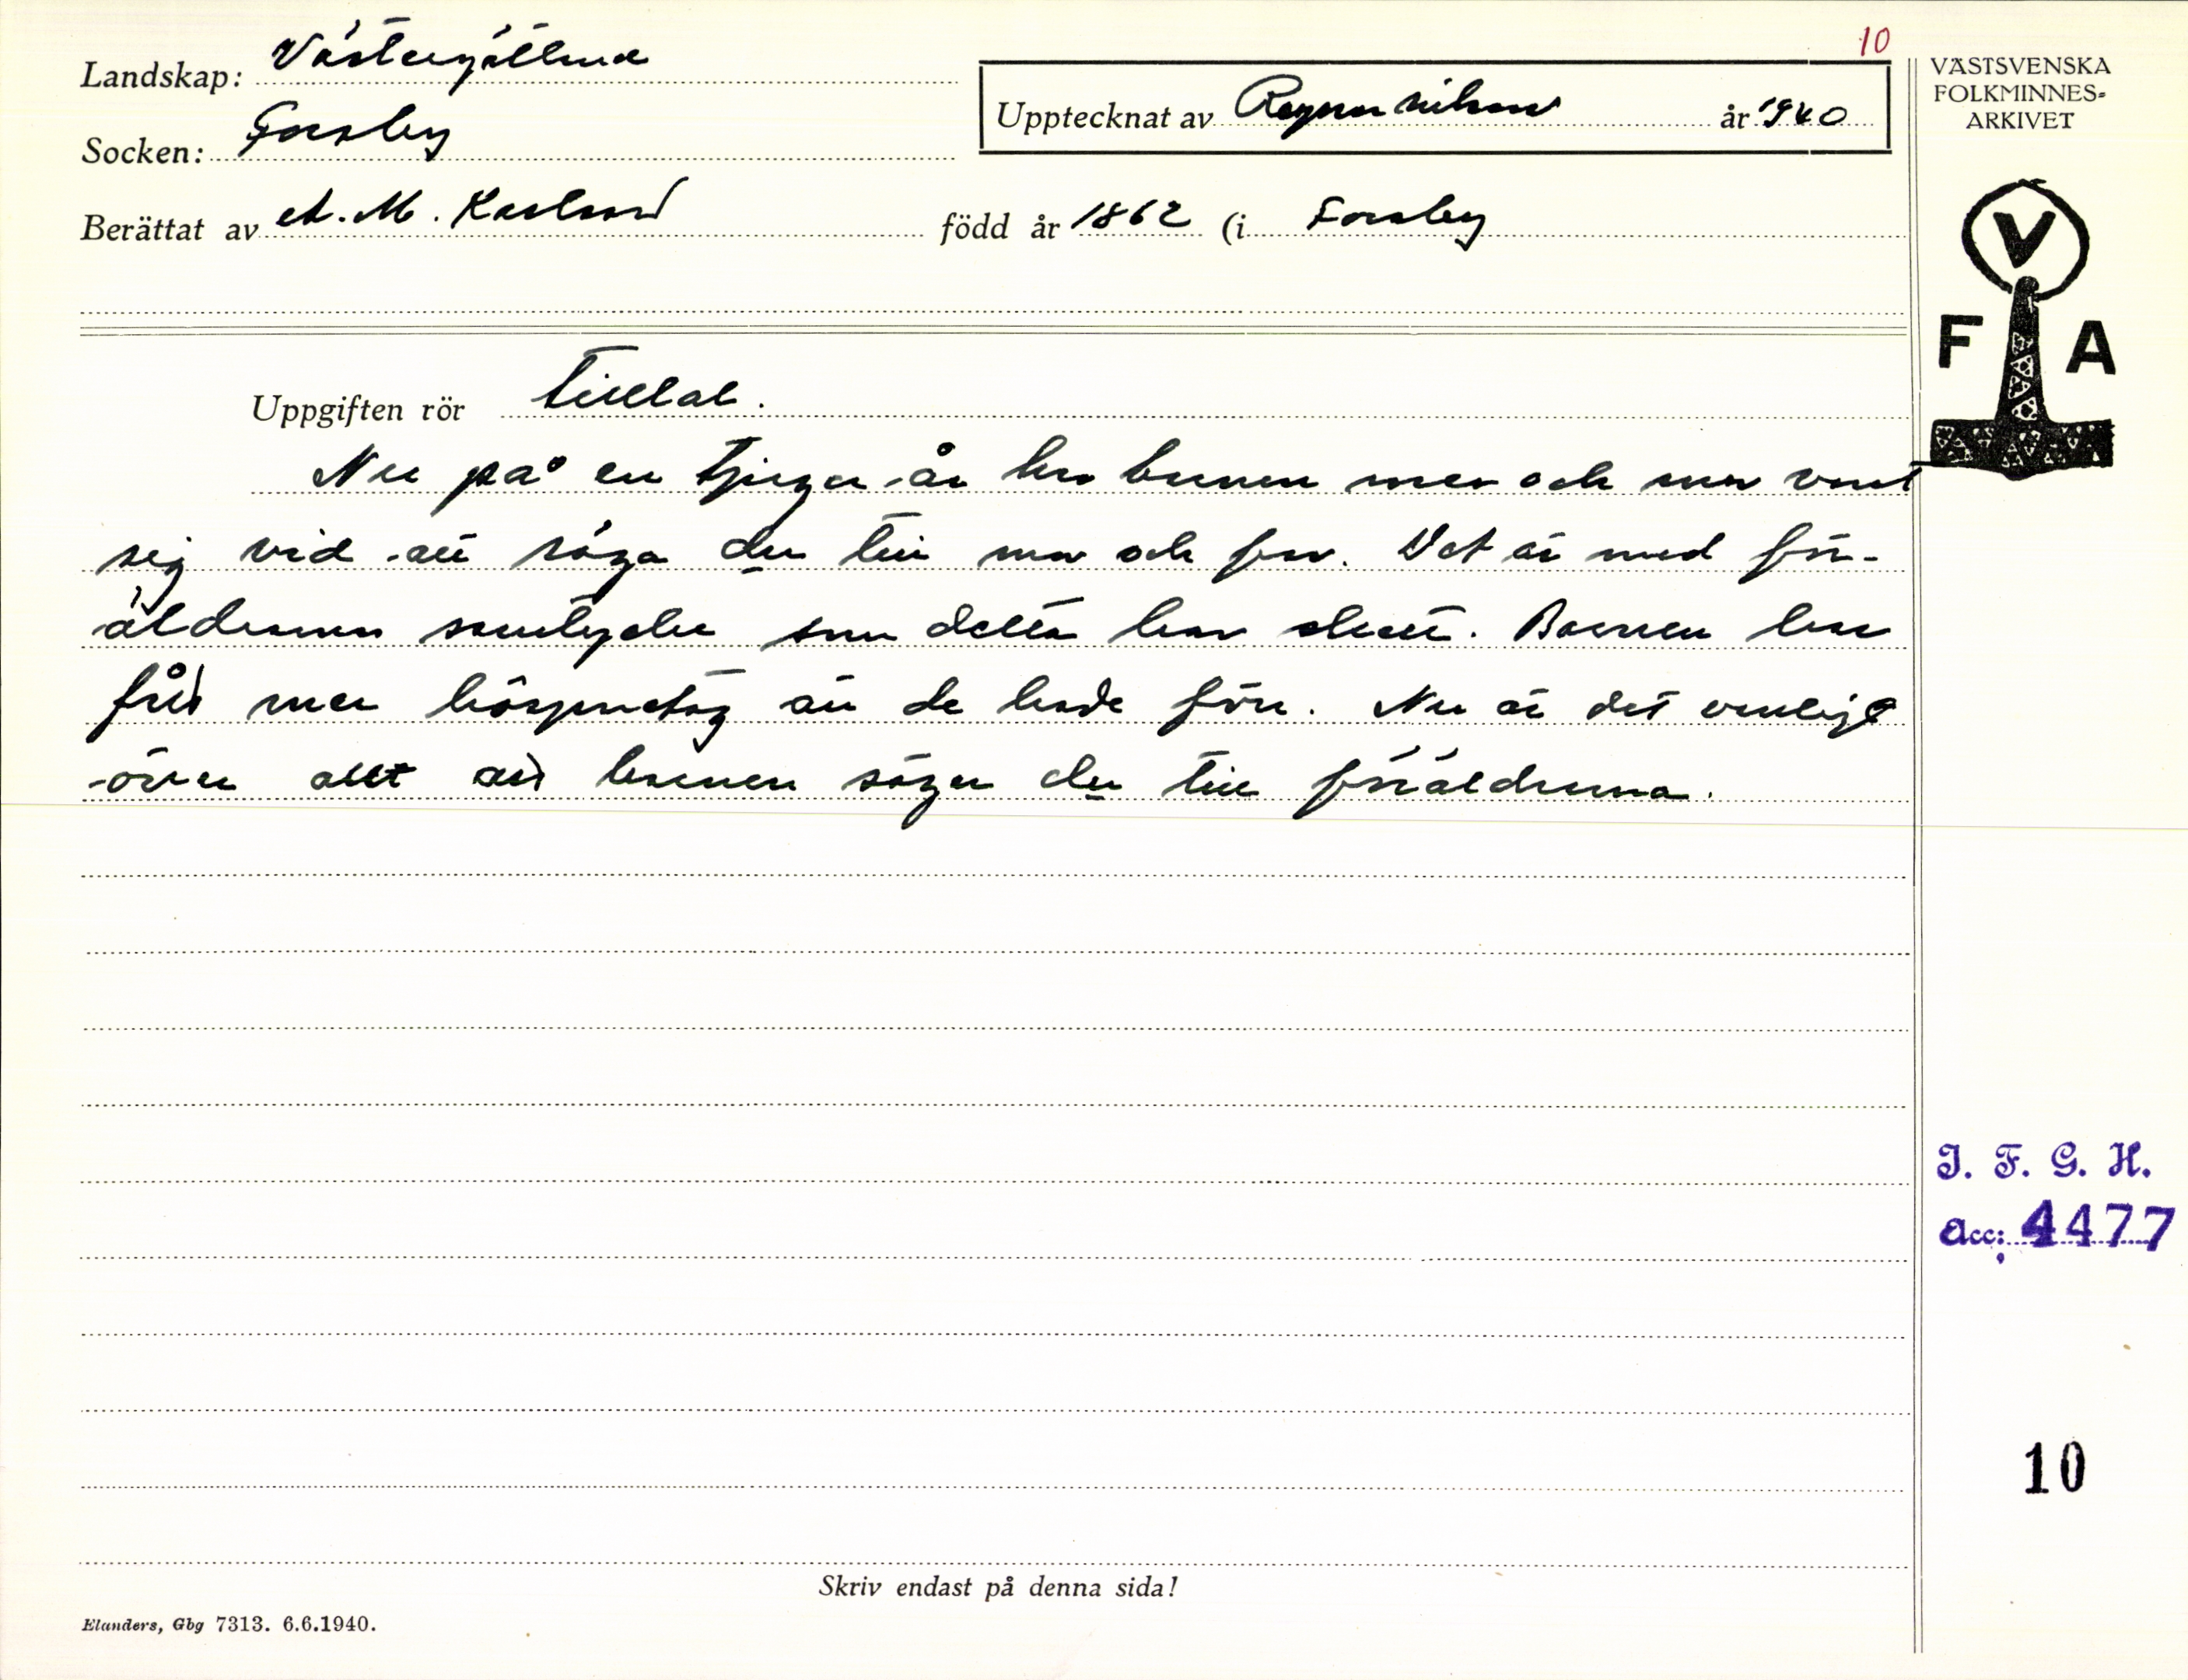 10
Landskap: Västergötland
Socken: Forsby
Upptecknat av Ragnar Nilsson år 1940
Berättat av A. M. Karlsson född år 1862 (i Forsby
Uppgiften rör Tilltal.
Nu på en tjugo år har barnen mer och mer vant
sig vid att säga du till mor och far. Det är med för-
äldrarnas samtycke som detta har skett. Barnen har
fått mer än de hade förr. Nu är det vanligt
över allt att barnen säger du till föräldrarna.
VÄSTSVENSKA
FOLKMINNES-
ARKIVET
V
F A
I. F. G. H.
Acc: 4477
10
Skriv endast på denna sida!
Elanders, Gbg 7313. 6.6.1940.